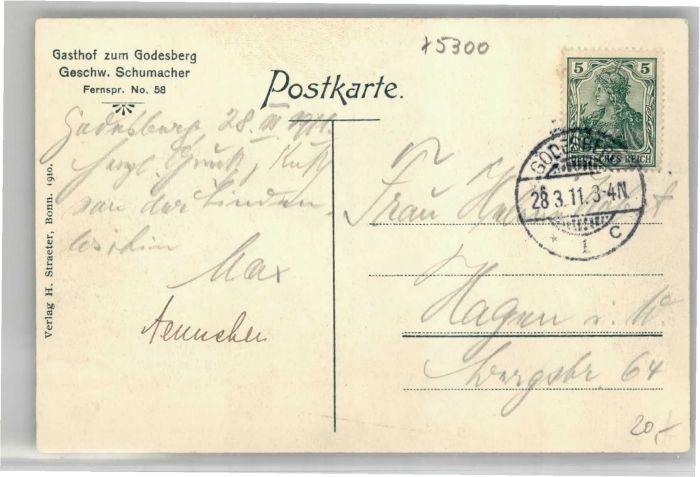 Gasthof zum Godesberg
Geschw. Schumacher
Fernspr. No. 58
x5300
Postkarte.
5 5
DEUTSCHES REICH
GODESBERG
28 3.11.3-4N
* 1 C
Godesberg 28. III 1911.
Herzl. Gruß, Kuß
von der Linden-
Max
Aennchen
Frau
Hagen i. W.
Bergstr. 64
Verlag H. Straeter, Bonn. 1910.
20,-